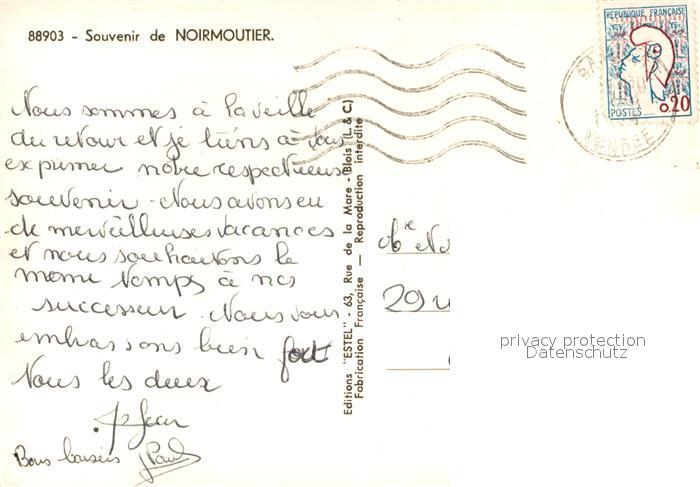 88903 - Souvenir de NOIRMOUTIER.
REPUBLIQUE FRANÇAISE
0.20
POSTES
VENDEE
Nous sommes à la veille
du retour et je tiens à vous
exprimer notre respectueux
souvenir. Nous avons eu
de merveilleuses vacances
et nous souhaitons le
même temps à nos
successeur. Nous vous
embrassons bien fort
Nous les deux
Jean
Bons baisers Paul
Editions "ESTEL" - 63, Rue de la Mare - Blois (L. & C)
Fabrication Française — Reproduction interdite
29
privacy protection
Datenschutz